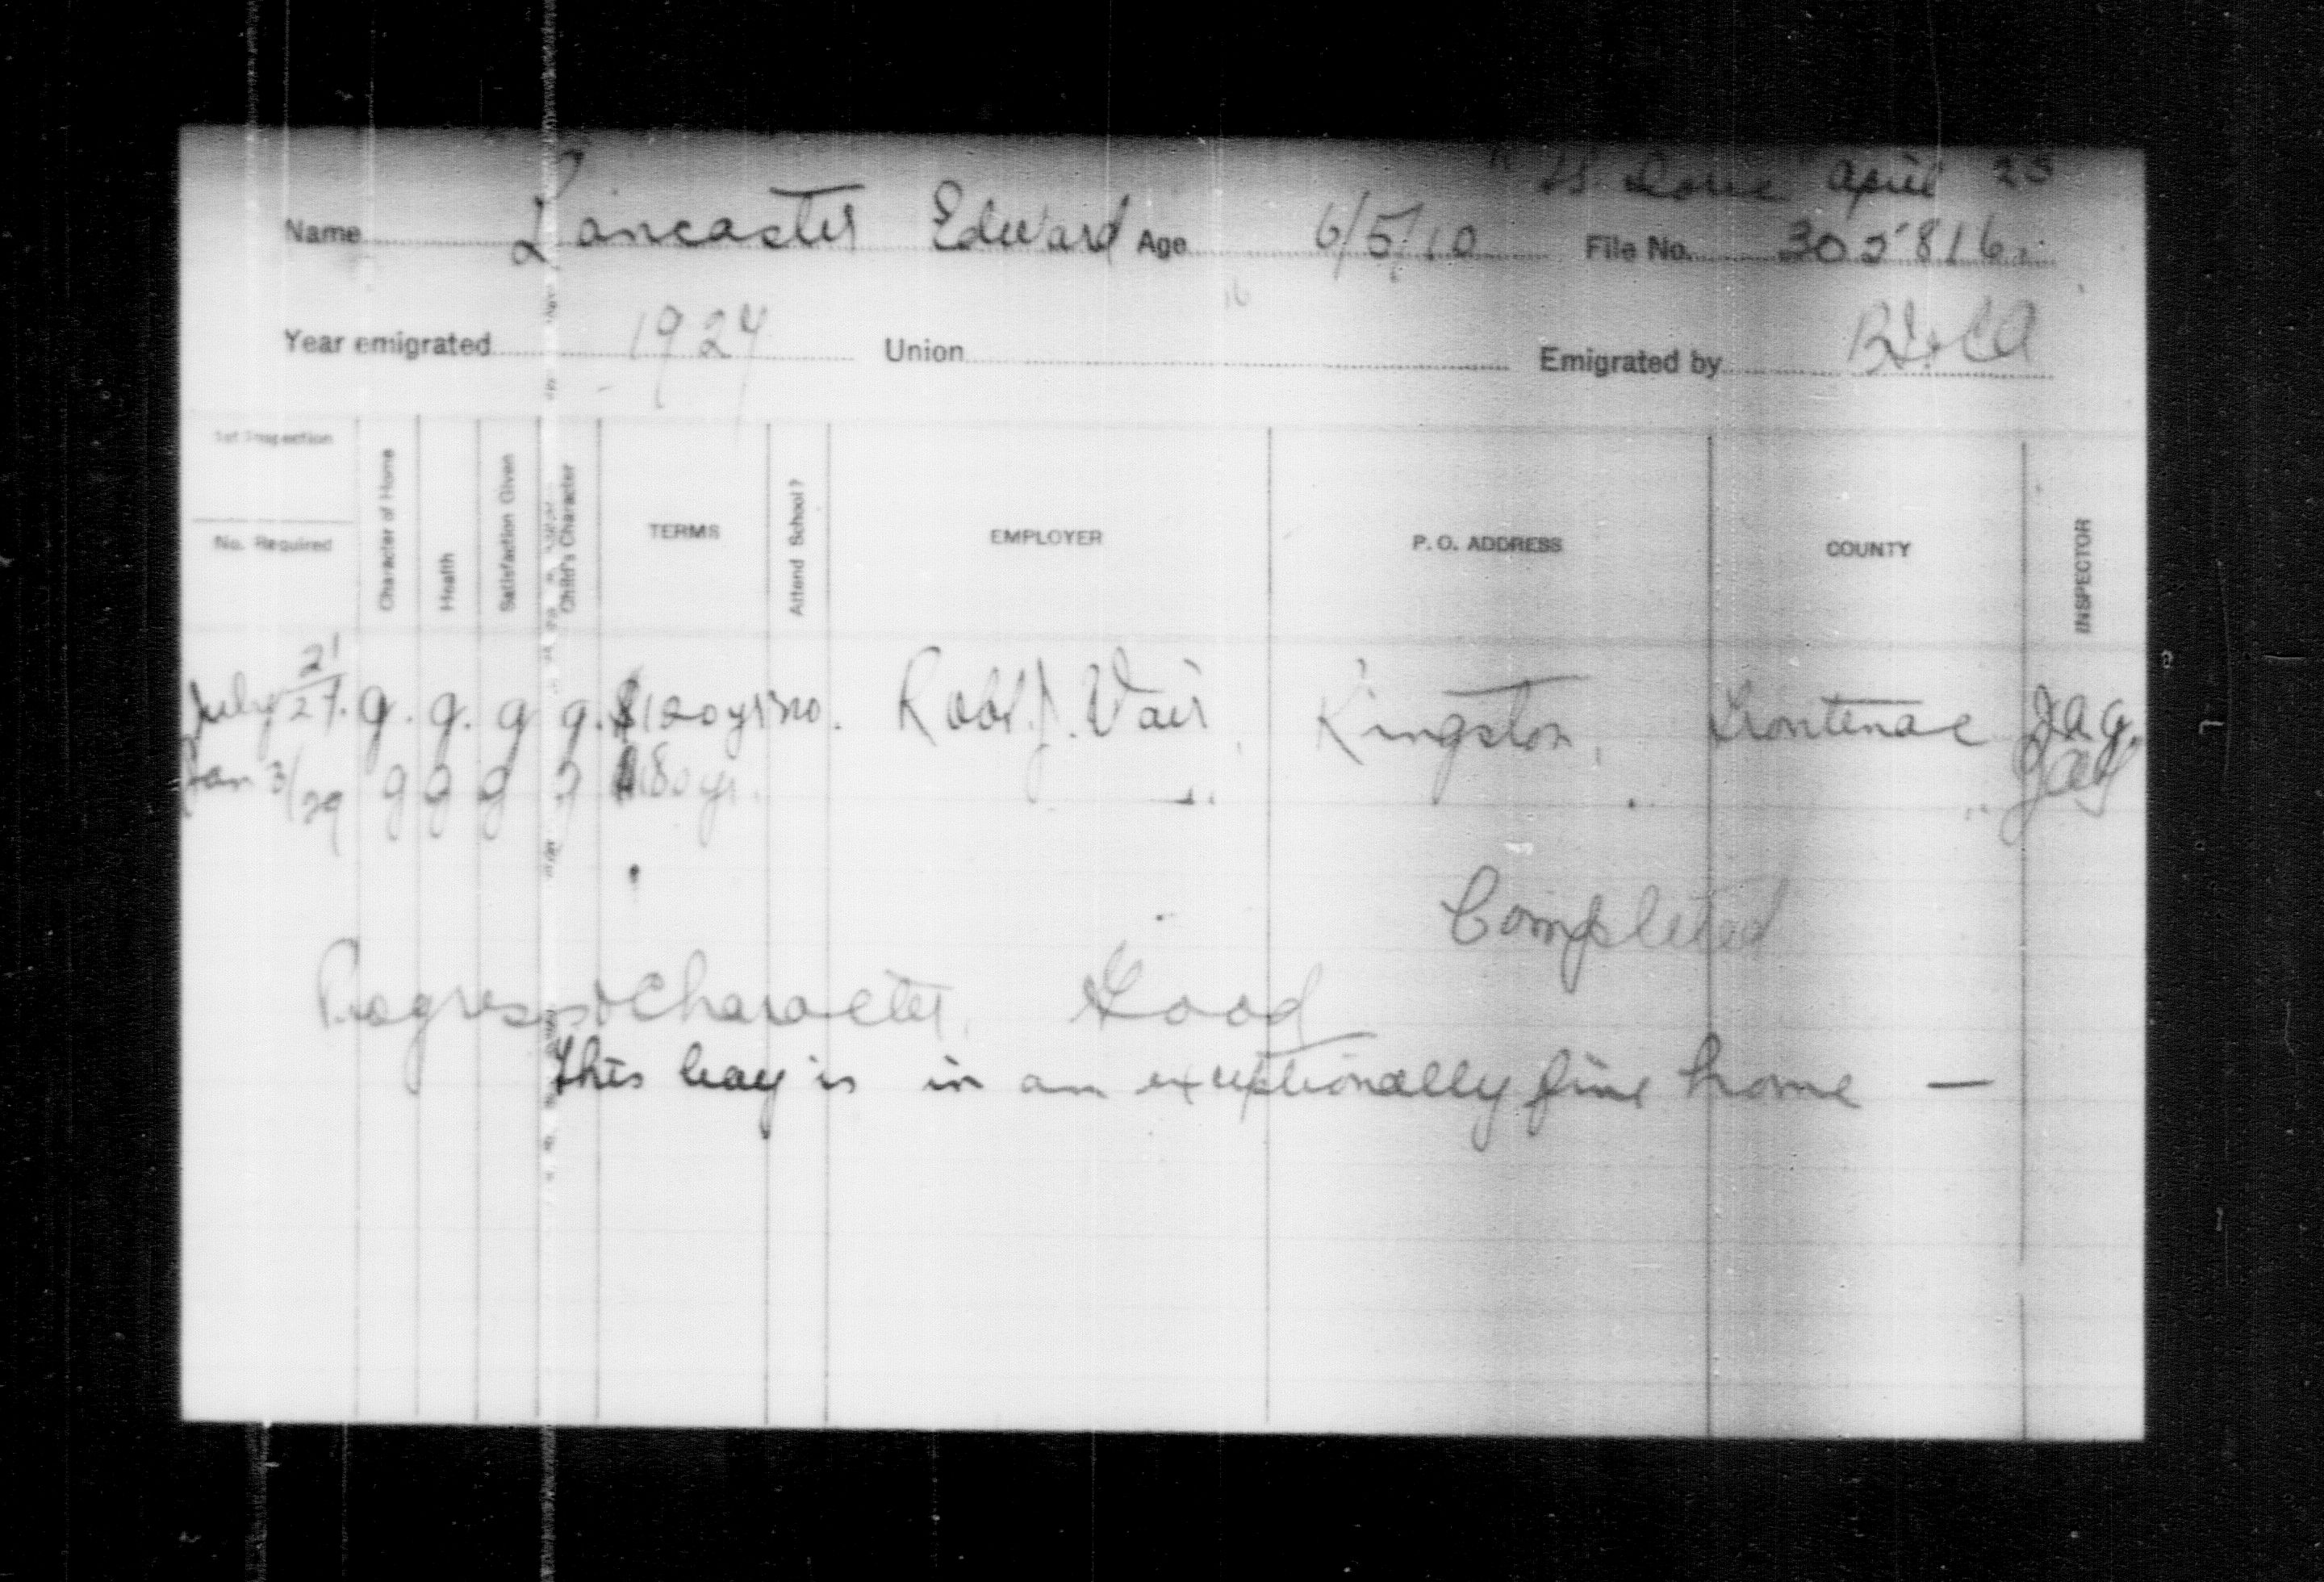 April 25
Name Lancaster Edward Age 6/5/10 File No. 305816.
Year emigrated 1924 Union Emigrated by
1st Inspection
No. Required Character of Home Health Satisfaction Given Child's Character TERMS Attend School? EMPLOYER P. O. ADDRESS COUNTY INSPECTOR
July 21/27. g. g. g g. $120 yr no. Robt. J. Vair, Kingston, Frontenac J.A.G.
Jan 3/29 g g g g 180 yr. " " "
Completed
Progress & Character. Good
This boy is in an exceptionally fine home —